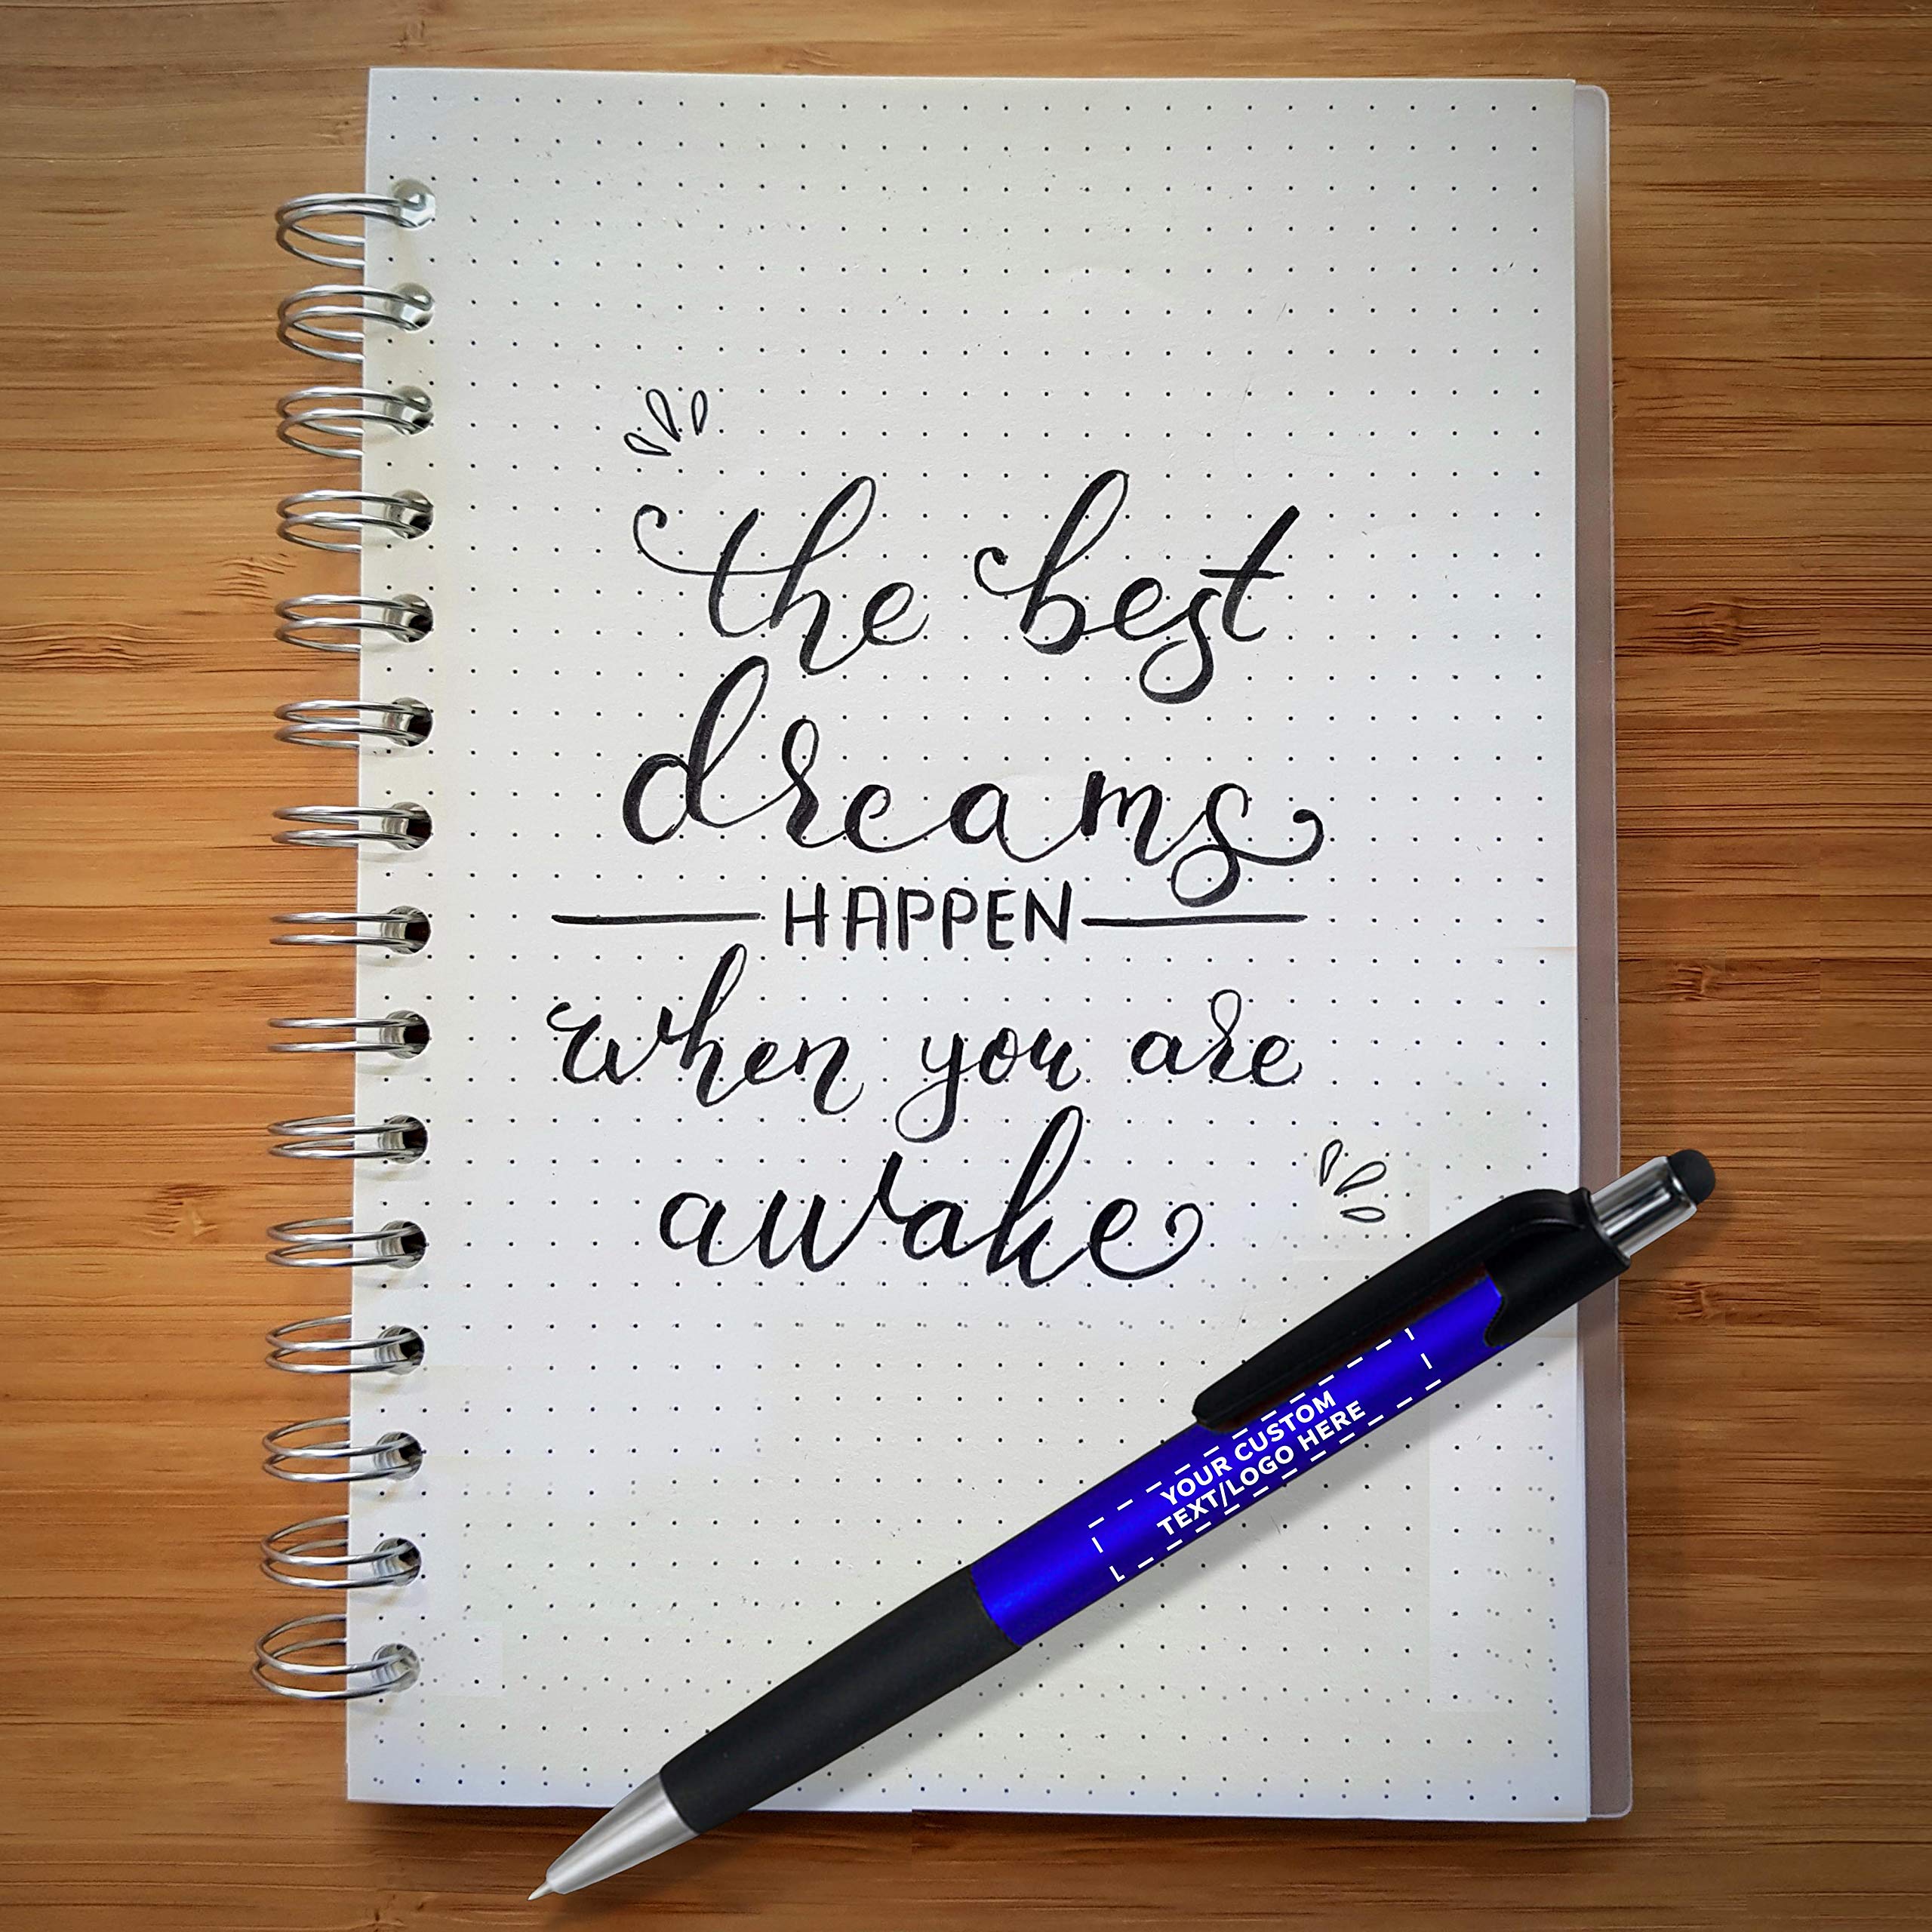 the best
dreams
HAPPEN
when you are
awake
YOUR CUSTOM
TEXT/LOGO HERE